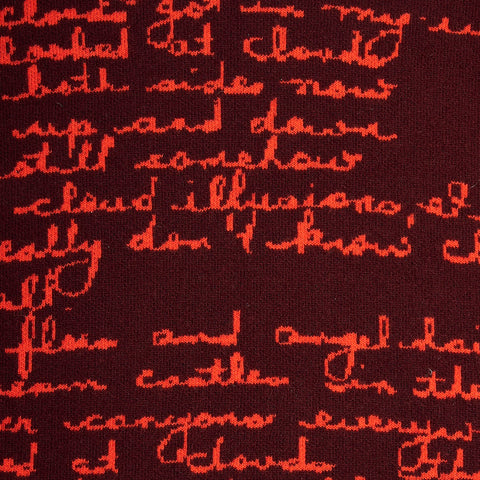 got in my
looked at cloud
both sides now
up and down
still somehow
cloud illusions I
really don't know
all
flow and angel hai
eam castles in the
er canyons everyw
d at cloud th